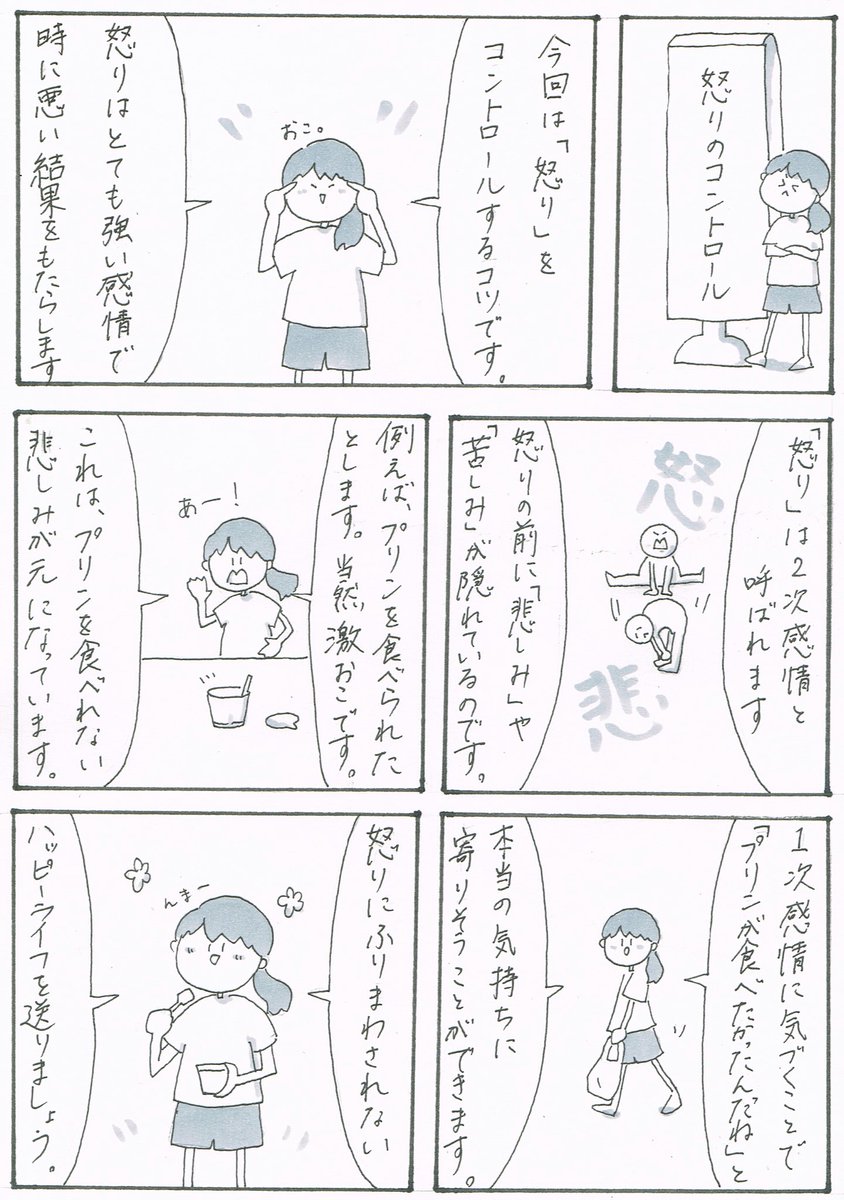 怒りのコントロール
今回は「怒り」を
コントロールするコツです。
おこ。
怒りはとても強い感情で
時に悪い結果をもたらします
「怒り」は2次感情と
呼ばれます
怒
悲
怒りの前に「悲しみ」や
「苦しみ」が隠れているのです。
例えば、プリンを食べられた
とします。当然、激おこです。
あー!
これは、プリンを食べれない
悲しみが元になっています。
1次感情に気づくことで
「プリンが食べたかったんだね」と
本当の気持ちに
寄りそうことができます。
怒りにふりまわされない
んまー
ハッピーライフを送りましょう。